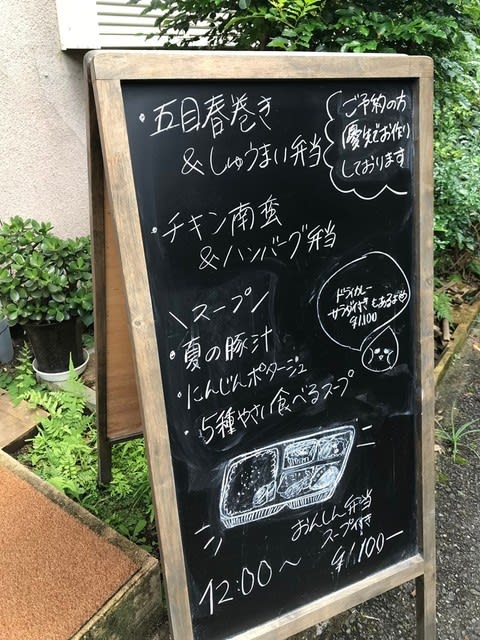 ・五目春巻き
&しゅうまい弁当
ご予約の方
優先でお作り
しております
・チキン南蛮
&ハンバーグ弁当
ドライカレー
サラダ付きもあるよ
¥1,100
\スープ/
・夏の豚汁
・にんじんポタージュ
・5種やさい食べるスープ
おんしん弁当
スープ付き
¥1,100-
12:00〜